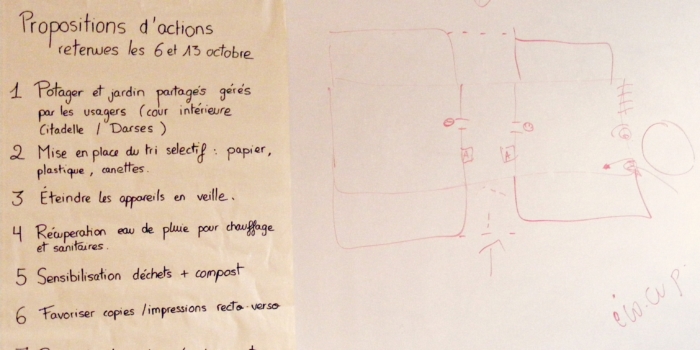 Propositions d'actions
retenues les 6 et 13 octobre
1 Potager et jardin partagés gérés
par les usagers (cour intérieure
Citadelle / Darses)
2 Mise en place du tri selectif : papier,
plastique, canettes.
3 Éteindre les appareils en veille.
4 Récuperation eau de pluie pour chauffage
et sanitaires.
5 Sensibilisation déchets + compost
6 Favoriser copies / impressions recto-verso
éco-cup